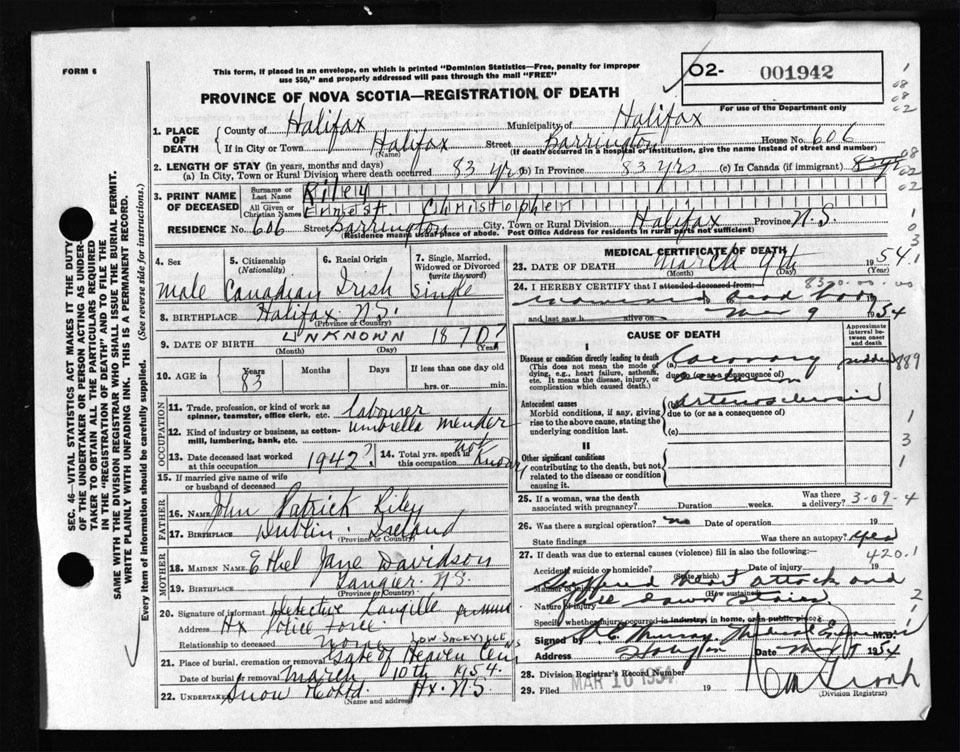 FORM 6
This form, if placed in an envelope, on which is printed "Dominion Statistics—Free, penalty for improper
use $50," and properly addressed will pass through the mail "FREE"
02- 001942
For use of the Department only
PROVINCE OF NOVA SCOTIA—REGISTRATION OF DEATH
1. PLACE OF DEATH
County of Halifax Municipality of Halifax
If in City or Town Halifax (Name) Street Barrington House No. 606
(If death occurred in a hospital or institution, give the name instead of street and number)
2. LENGTH OF STAY (in years, months and days)
(a) In City, Town or Rural Division where death occurred 83 yrs (b) In Province 83 yrs (c) In Canada (if immigrant)
3. PRINT NAME OF DECEASED
Surname or Last Name Riley
All Given or Christian Names Ernest Christopher
RESIDENCE No. 606 Street Barrington City, Town or Rural Division Halifax Province N.S.
(Residence means usual place of abode. Post Office Address for residents in rural parts not sufficient)
4. Sex male
5. Citizenship (Nationality) Canadian
6. Racial Origin Irish
7. Single, Married, Widowed or Divorced (write the word) Single
8. BIRTHPLACE Halifax N.S.
(Province or Country)
9. DATE OF BIRTH UNKNOWN 1870?
(Month) (Day) (Year)
10. AGE in Years 83 Months Days If less than one day old
hrs. or min.
OCCUPATION
11. Trade, profession or kind of work as spinner, teamster, office clerk, etc. labourer
12. Kind of industry or business, as cotton-mill, lumbering, bank, etc. umbrella mender
13. Date deceased last worked at this occupation 1942?
14. Total yrs. spent at this occupation not Known
15. If married give name of wife or husband of deceased
FATHER
16. NAME John Patrick Riley
17. BIRTHPLACE Dublin Ireland
(Province or Country)
MOTHER
18. MAIDEN NAME Ethel Jane Davidson
19. BIRTHPLACE Tangier N.S.
(Province or Country)
20. Signature of informant Detective Langille
Address Hx Police Force
Relationship to deceased none
LOW. SACKVILLE N.S
21. Place of burial, cremation or removal Gate of Heaven Cem
Date of burial or removal March 10th 1954.
22. Undertaker Snow Hx. N.S.
(Name and address)
MEDICAL CERTIFICATE OF DEATH
23. DATE OF DEATH March 9th 1954
(Month) (Day) (Year)
24. I HEREBY CERTIFY that I attended deceased from:
examined dead body
and last saw h alive on Mar 9 1954
CAUSE OF DEATH
Approximate interval between onset and death
I
Disease or condition directly leading to death
(This does not mean the mode of dying, e.g., heart failure, asthenia, etc. It means the disease, injury, or complication which caused death.)
(a) Coronary sudden
due to (or as consequence of)
Antecedent causes
Morbid conditions, if any, giving rise to the above cause, stating the underlying condition last.
(b) arteriosclerosis
due to (or as a consequence of)
(c)
II
Other significant conditions
contributing to the death, but not related to the disease or condition causing it.
25. If a woman, was the death associated with pregnancy? Duration weeks. Was there a delivery? 3-09-4
26. Was there a surgical operation? no Date of operation 19
State findings Was there an autopsy? yes
27. If death was due to external causes (violence) fill in also the following:— 420.1
Accident suicide or homicide? Date of injury 19
(State which)
Suffered heart attack and
(How sustained)
Nature of injury fell down stairs
Specify whether injury occurred in industry, in home, or in public place
Signed by Murray Medical Examiner M.D.
Address Halifax Date 1954
28. Division Registrar's Record Number
29. Filed MAR 10 1954 19
(Division Registrar)
SEC. 46—VITAL STATISTICS ACT MAKES IT THE DUTY
OF THE UNDERTAKER OR PERSON ACTING AS UNDER-
TAKER TO OBTAIN ALL THE PARTICULARS REQUIRED
IN THE "REGISTRATION OF DEATH" AND TO FILE THE
SAME WITH THE DIVISION REGISTRAR WHO SHALL ISSUE THE BURIAL PERMIT.
WRITE PLAINLY WITH UNFADING INK. THIS IS A PERMANENT RECORD.
Every item of information should be carefully supplied. (See reverse side for instructions.)